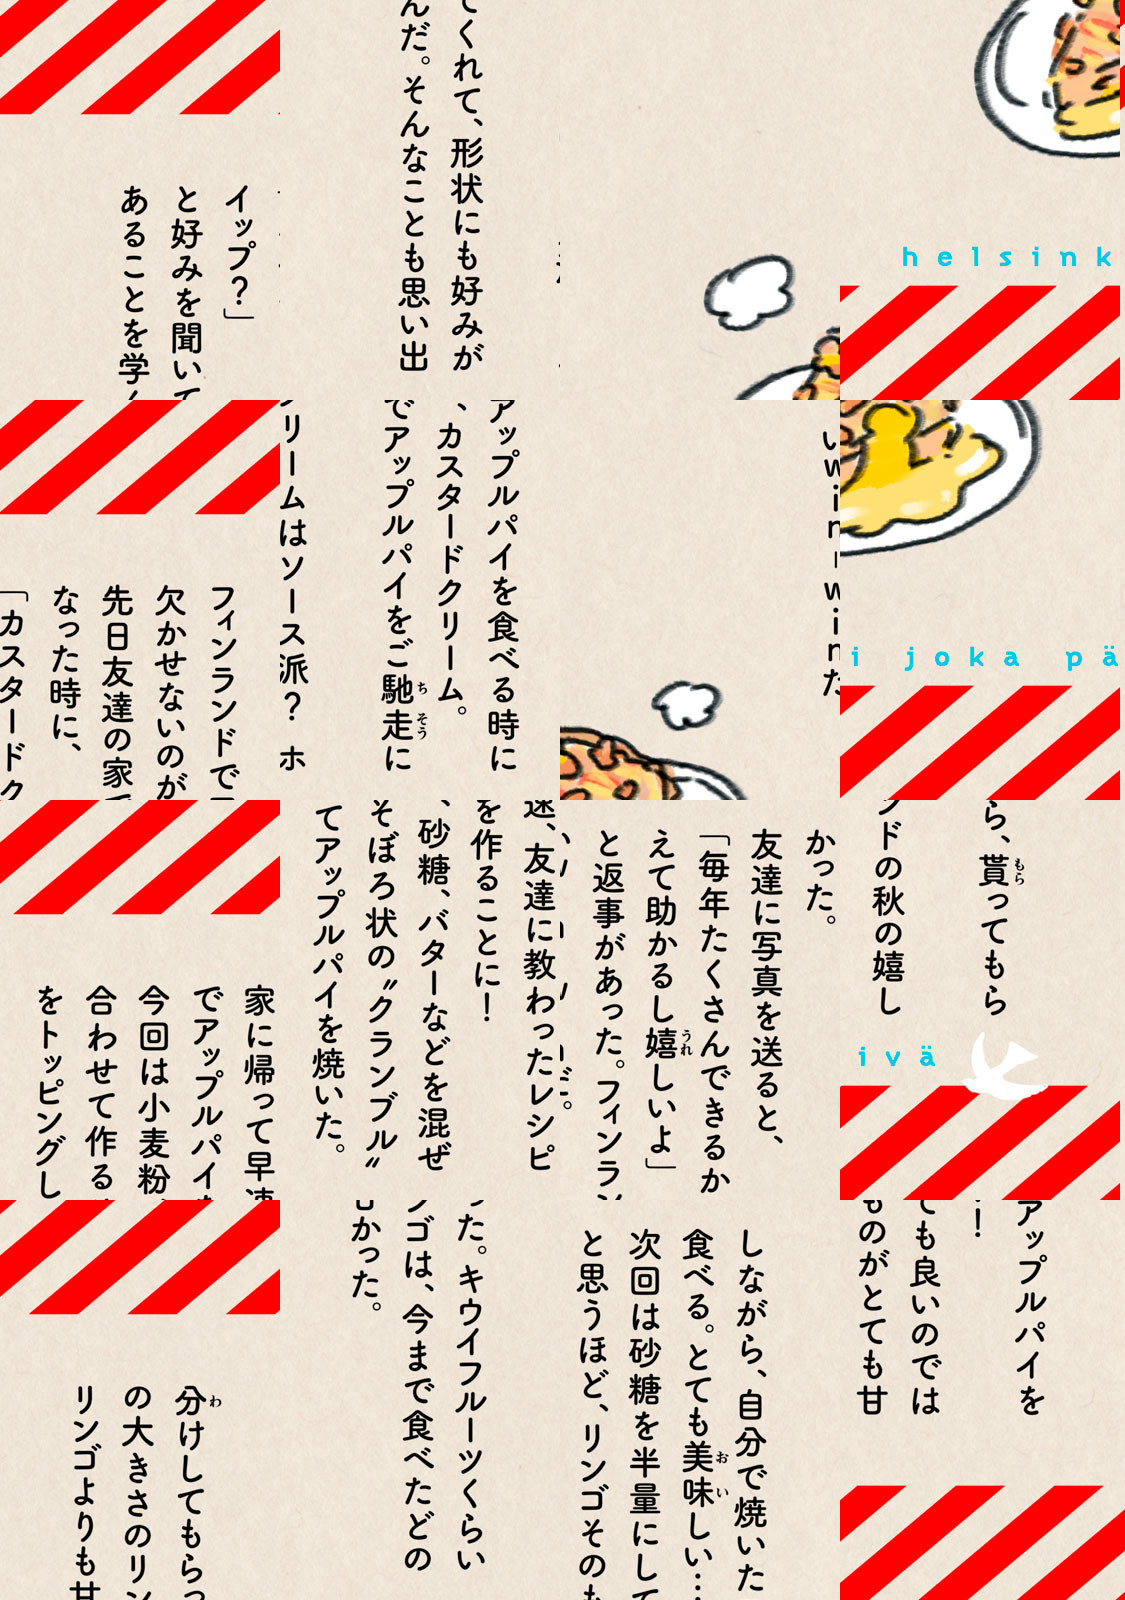 イップ？」
と好みを聞いて
あることを学
てくれて、形状にも好みが
んだ。そんなことも思い出
helsink
フィンランドで
欠かせないのが
先日友達の家で
なった時に、
「カスタードク
アップルパイを食べる時に
、カスタードクリーム。
でアップルパイをご馳走に
リームはソース派？　ホ
i joka pä
家に帰って早速
でアップルパイを
今回は小麦粉
合わせて作る
をトッピングし
速、友達に教わったレシピ
を作ることに！
、砂糖、バターなどを混ぜ
そぼろ状の〝クランブル〟
てアップルパイを焼いた。
かった。
友達に写真を送ると、
「毎年たくさんできるか
えて助かるし嬉しいよ」
と返事があった。フィンラン
ら、貰ってもら
ンドの秋の嬉し
ivä
分けしてもらっ
の大きさのリン
リンゴよりも甘
った。キウイフルーツくらい
ンゴは、今まで食べたどの
かった。
しながら、自分で焼いた
食べる。とても美味しい…
次回は砂糖を半量にして
と思うほど、リンゴそのも
アップルパイを
！
ても良いのでは
ものがとても甘